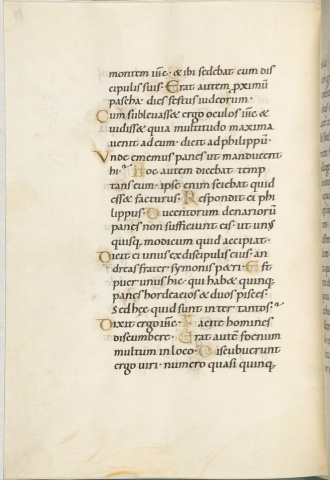 montem ihc̄· & ibi sedebat cum dis
cipulis suis· Erat autem pximū
pascha· dies festus iudeorum·
Cum subleuass& ergo oculos ihc̄ &
uidiss& quia multitudo maxima
uenit ad eum· dicit ad philippū·
Vnde ememus panes ut manducent
hi· Hoc autem dicebat temp
tans eum· ipse enim sciebat quid
ess& facturus· Respondit ei phi
lippus· Ducentorum denariorū
panes non sufficiunt eis· ut unus
quisq; modicum quid accipiat·
Dicit ei unus ex discipulis eius· an
dreas frater symonis p&ri· Est
puer unus hic· qui hab& quinq;
panes hordeacios & duos pisces·
Sed hęc quid sunt inter tantos·
Dixit ergo ihc̄· Facite homines
discumbere· Erat autē foenum
multum in loco· Discubuerunt
ergo uiri· numero quasi quinq;